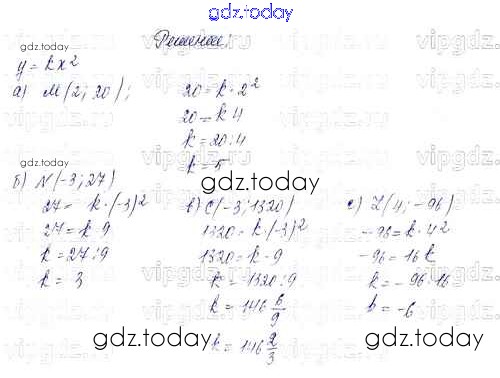 gdz.today
Решение:
gdz.today
y = kx²
а) M(2; 20);
20 = k·2²
20 = k·4
k = 20:4
k = 5
gdz.today
б) N(-3; 27)
27 = k·(-3)²
27 = k·9
k = 27:9
k = 3
в) C(-3; 1320)
1320 = k·(-3)²
1320 = k·9
k = 1320:9
k = 146 6/9
k = 146 2/3
L(4; -96)
-96 = k·4²
-96 = 16k
k = -96:16
k = -6
gdz.today
gdz.today
gdz.today